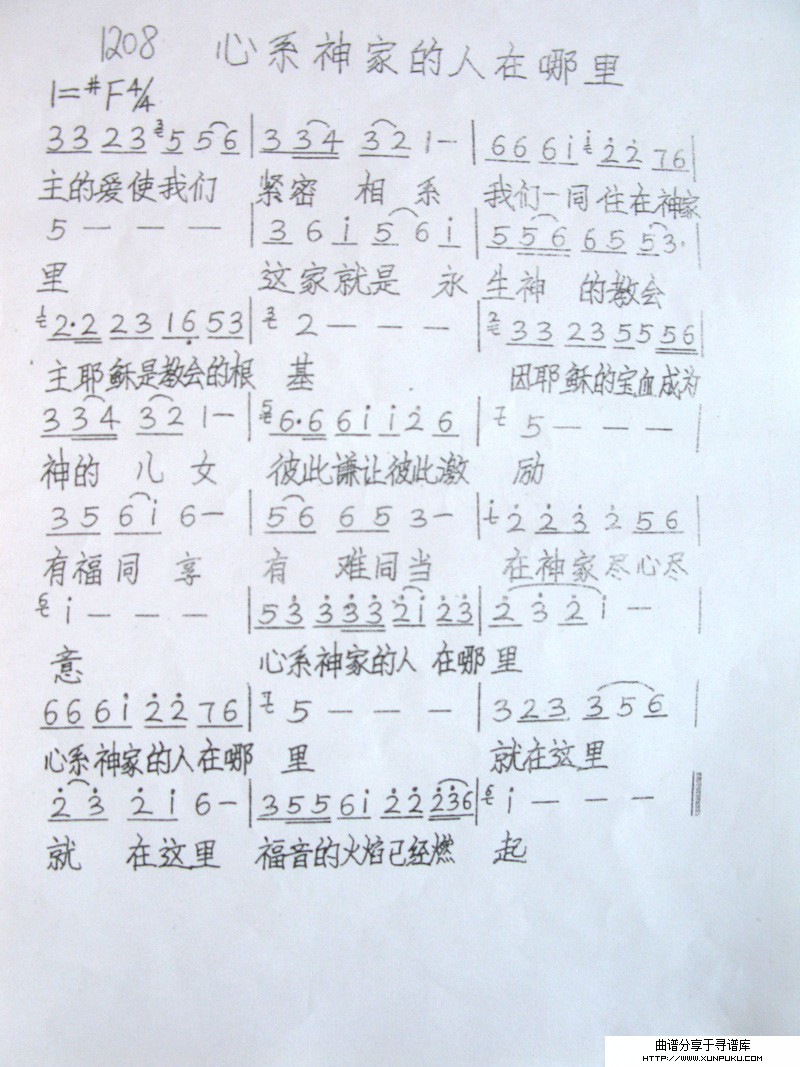 1208 心系神家的人在哪里
1=#F 4/4
33 23 5 556 | 3 334 32 1— | 66 6i 22 76 |
主的爱使我们 紧密 相系 我们一同住在神家
5 — — — | 3 6 i 5 6 i | 5 56 65 53· |
里 这家就是 永生神 的教会
2·2 23 16 53 | 2 — — — | 33 23 55 56 |
主耶稣是教会的根 基 因耶稣的宝血成为
3 34 32 1— | 6·6 6i i2 6 | 5 — — — |
神的 儿女 彼此谦让彼此激 励
35 6i 6— | 56 65 3— | 2 23 2 56 |
有福同 享 有 难同当 在神家尽心尽
i — — — | 53 333 2i 23 | 2 3 2 i — |
意 心系神家的人 在哪里
66 6i 22 76 | 5 — — — | 323 356 |
心系神家的人在哪 里 就在这里
23 2i 6— | 355 6i 22 236 | i — — — ‖
就 在这里 福音的火焰已经燃 起
曲谱分享于寻谱库
HTTP://WWW.XUNPUKU.COM